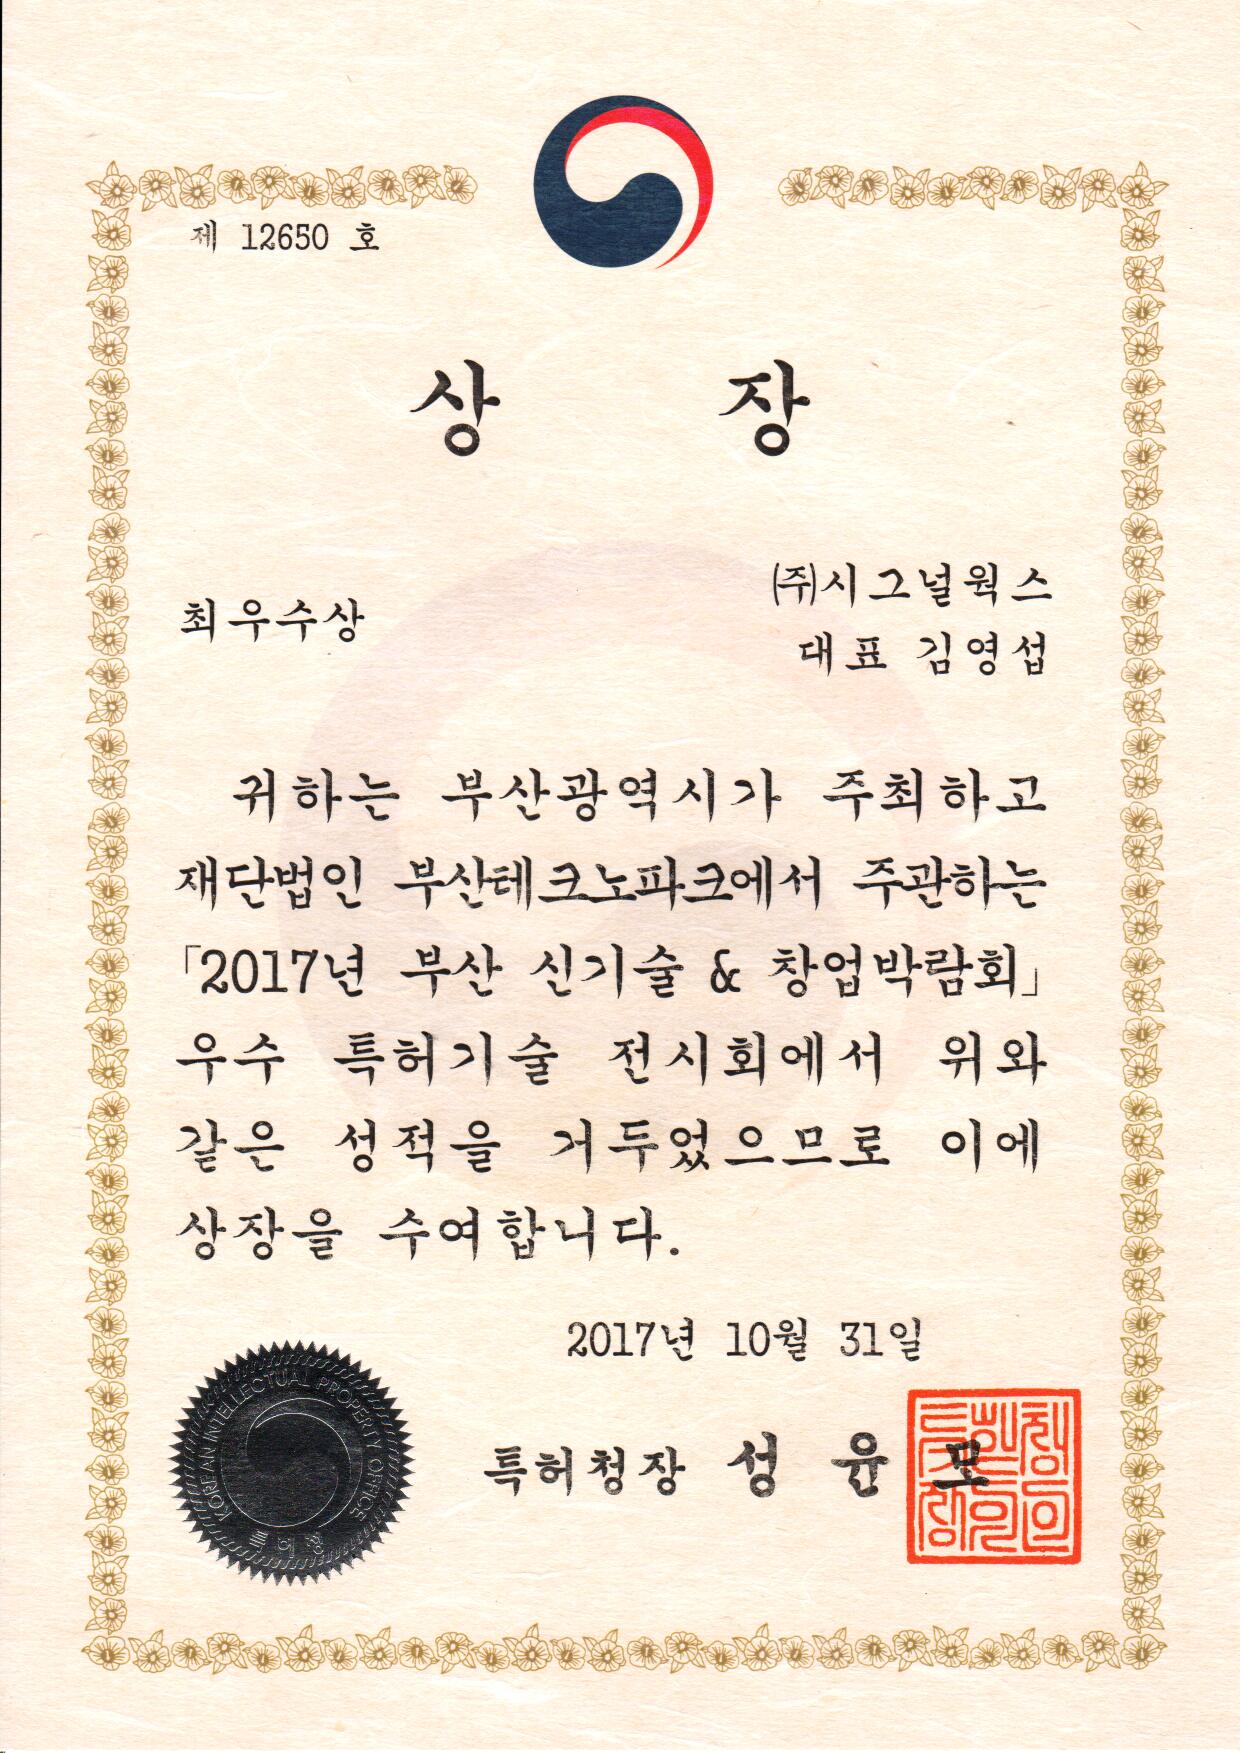 제 12650 호
상 장
최우수상
㈜시그널웍스
대표 김영섭
귀하는 부산광역시가 주최하고
재단법인 부산테크노파크에서 주관하는
「2017년 부산 신기술 & 창업박람회」
우수 특허기술 전시회에서 위와
같은 성적을 거두었으므로 이에
상장을 수여합니다.
2017년 10월 31일
특허청장 성 윤 모
KOREAN INTELLECTUAL PROPERTY OFFICE
특허청